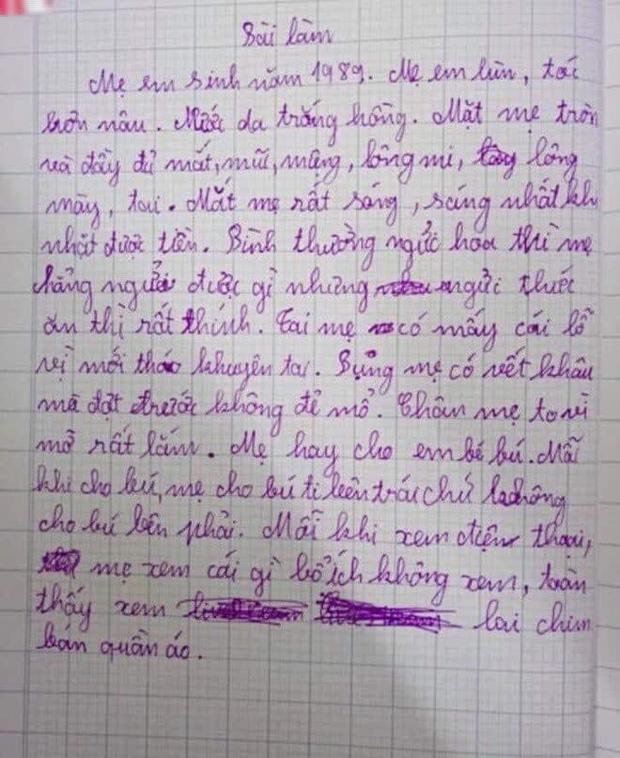 Bài làm
Mẹ em sinh năm 1989. Mẹ em lùn, tóc
hơn nâu. Nước da trắng hồng. Mặt mẹ tròn
và đầy đủ mắt, mũi, miệng, lông mi, lông
mày, tai. Mắt mẹ rất sáng, sáng nhất kh
nhặt được tiền. Bình thường ngửi hoa thì mẹ
chẳng ngửi được gì nhưng ngửi thức
ăn thì rất thính. Tai mẹ có mấy cái lỗ
vị mới tháo khuyên tai. Bụng mẹ có vết khâu
mà đợt trước không đẻ mổ. Chân mẹ to vì
mỡ rất lắm. Mẹ hay cho em bé bú. Mỗi
khi cho bú, mẹ cho bú ti bên trái chứ không
cho bú bên phải. Mỗi khi xem điện thoại,
mẹ xem cái gì bổ ích không xem, toàn
thấy xem lai chim
bán quần áo.